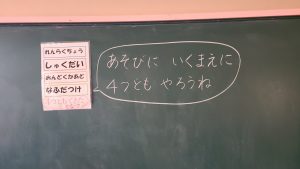 れんらくちょう
しゅくだい
おんどくかあど
なふだつけ
あそびに いくまえに
4つとも やろうね